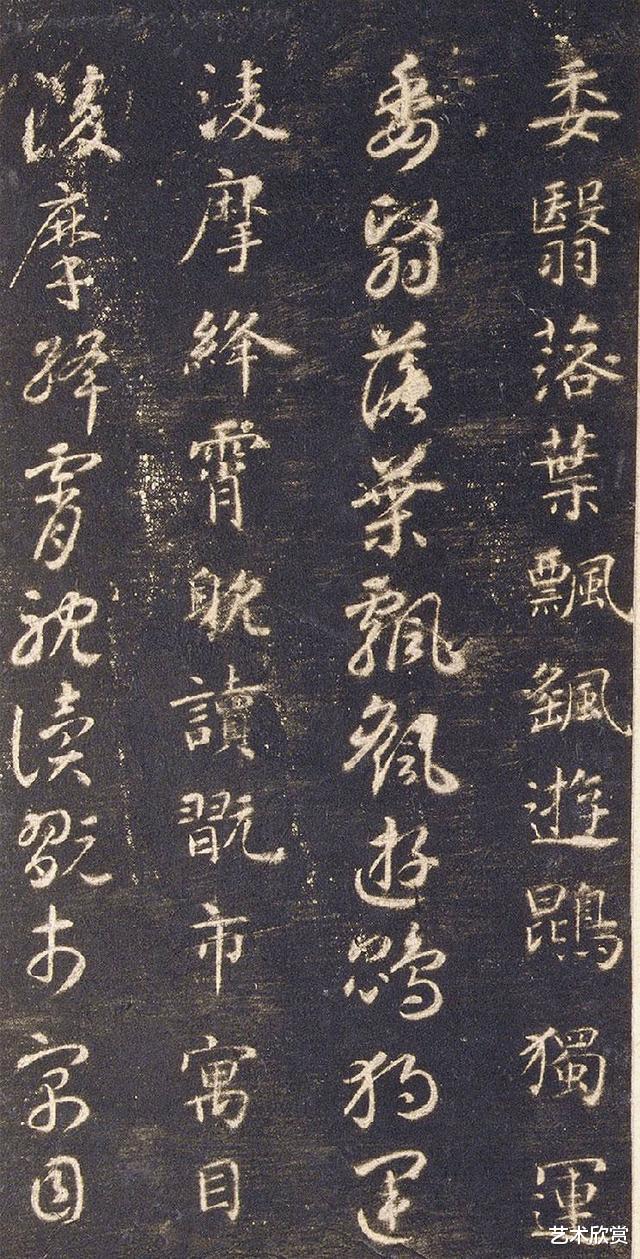 委翳落葉飄颻遊鵾獨運
委翳落葉飄颻遊鵾獨運
凌摩絳霄耽讀翫市寓目
凌摩絳霄耽讀翫市寓目
艺术欣赏